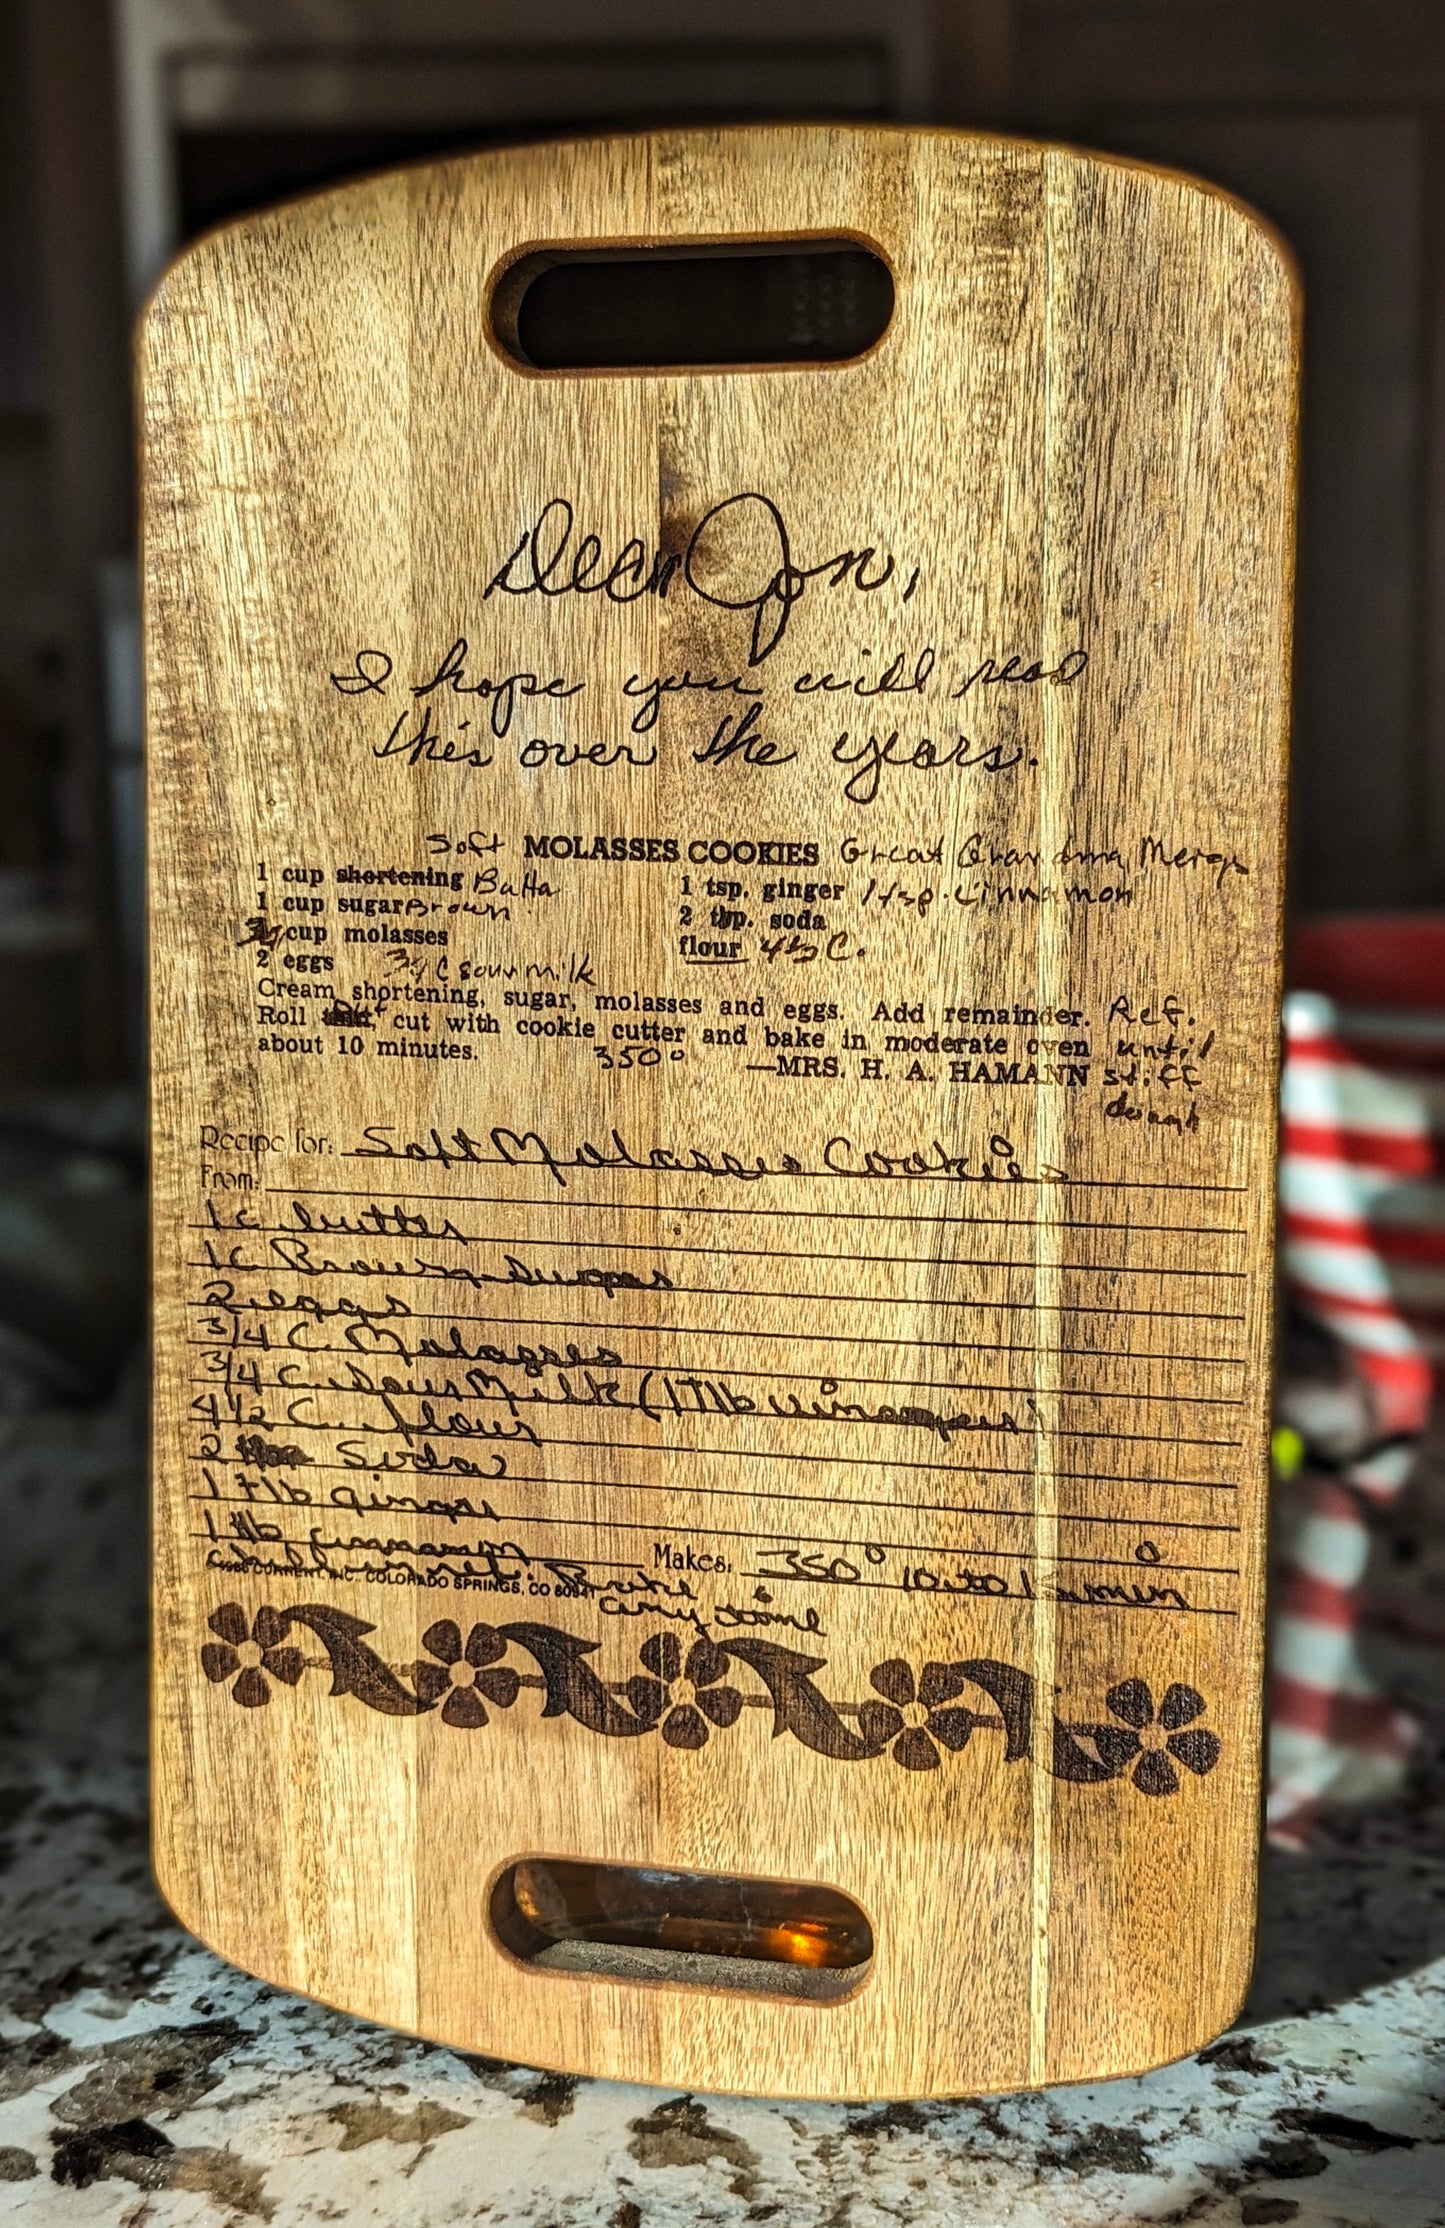 Dear Jon,
I hope you will read
this over the years.
Soft MOLASSES COOKIES Great Grandma
1 cup shortening Butta 1 tsp. ginger 1 tsp. Cinnamon
1 cup sugar Brown 2 tsp. soda
3/4 cup molasses flour 4 1/2 C.
2 eggs 3/4 C sour milk
Cream shortening, sugar, molasses and eggs. Add remainder. Ref.
Roll cut with cookie cutter and bake in moderate oven until
about 10 minutes. 350° —MRS. H. A. HAMANN stiff
dough
Recipe for: Soft Molasses Cookies
From:
1c butter
1c Brown Sugar
2 eggs
3/4 C. Molasses
3/4 C. Sour Milk (1 Tlb vinegar)
4 1/2 C. flour
2 Soda
1 Tlb ginger
1 Tlb cinnamon Makes: 350° 10 to min
INC. COLORADO SPRINGS, CO Bake
any time